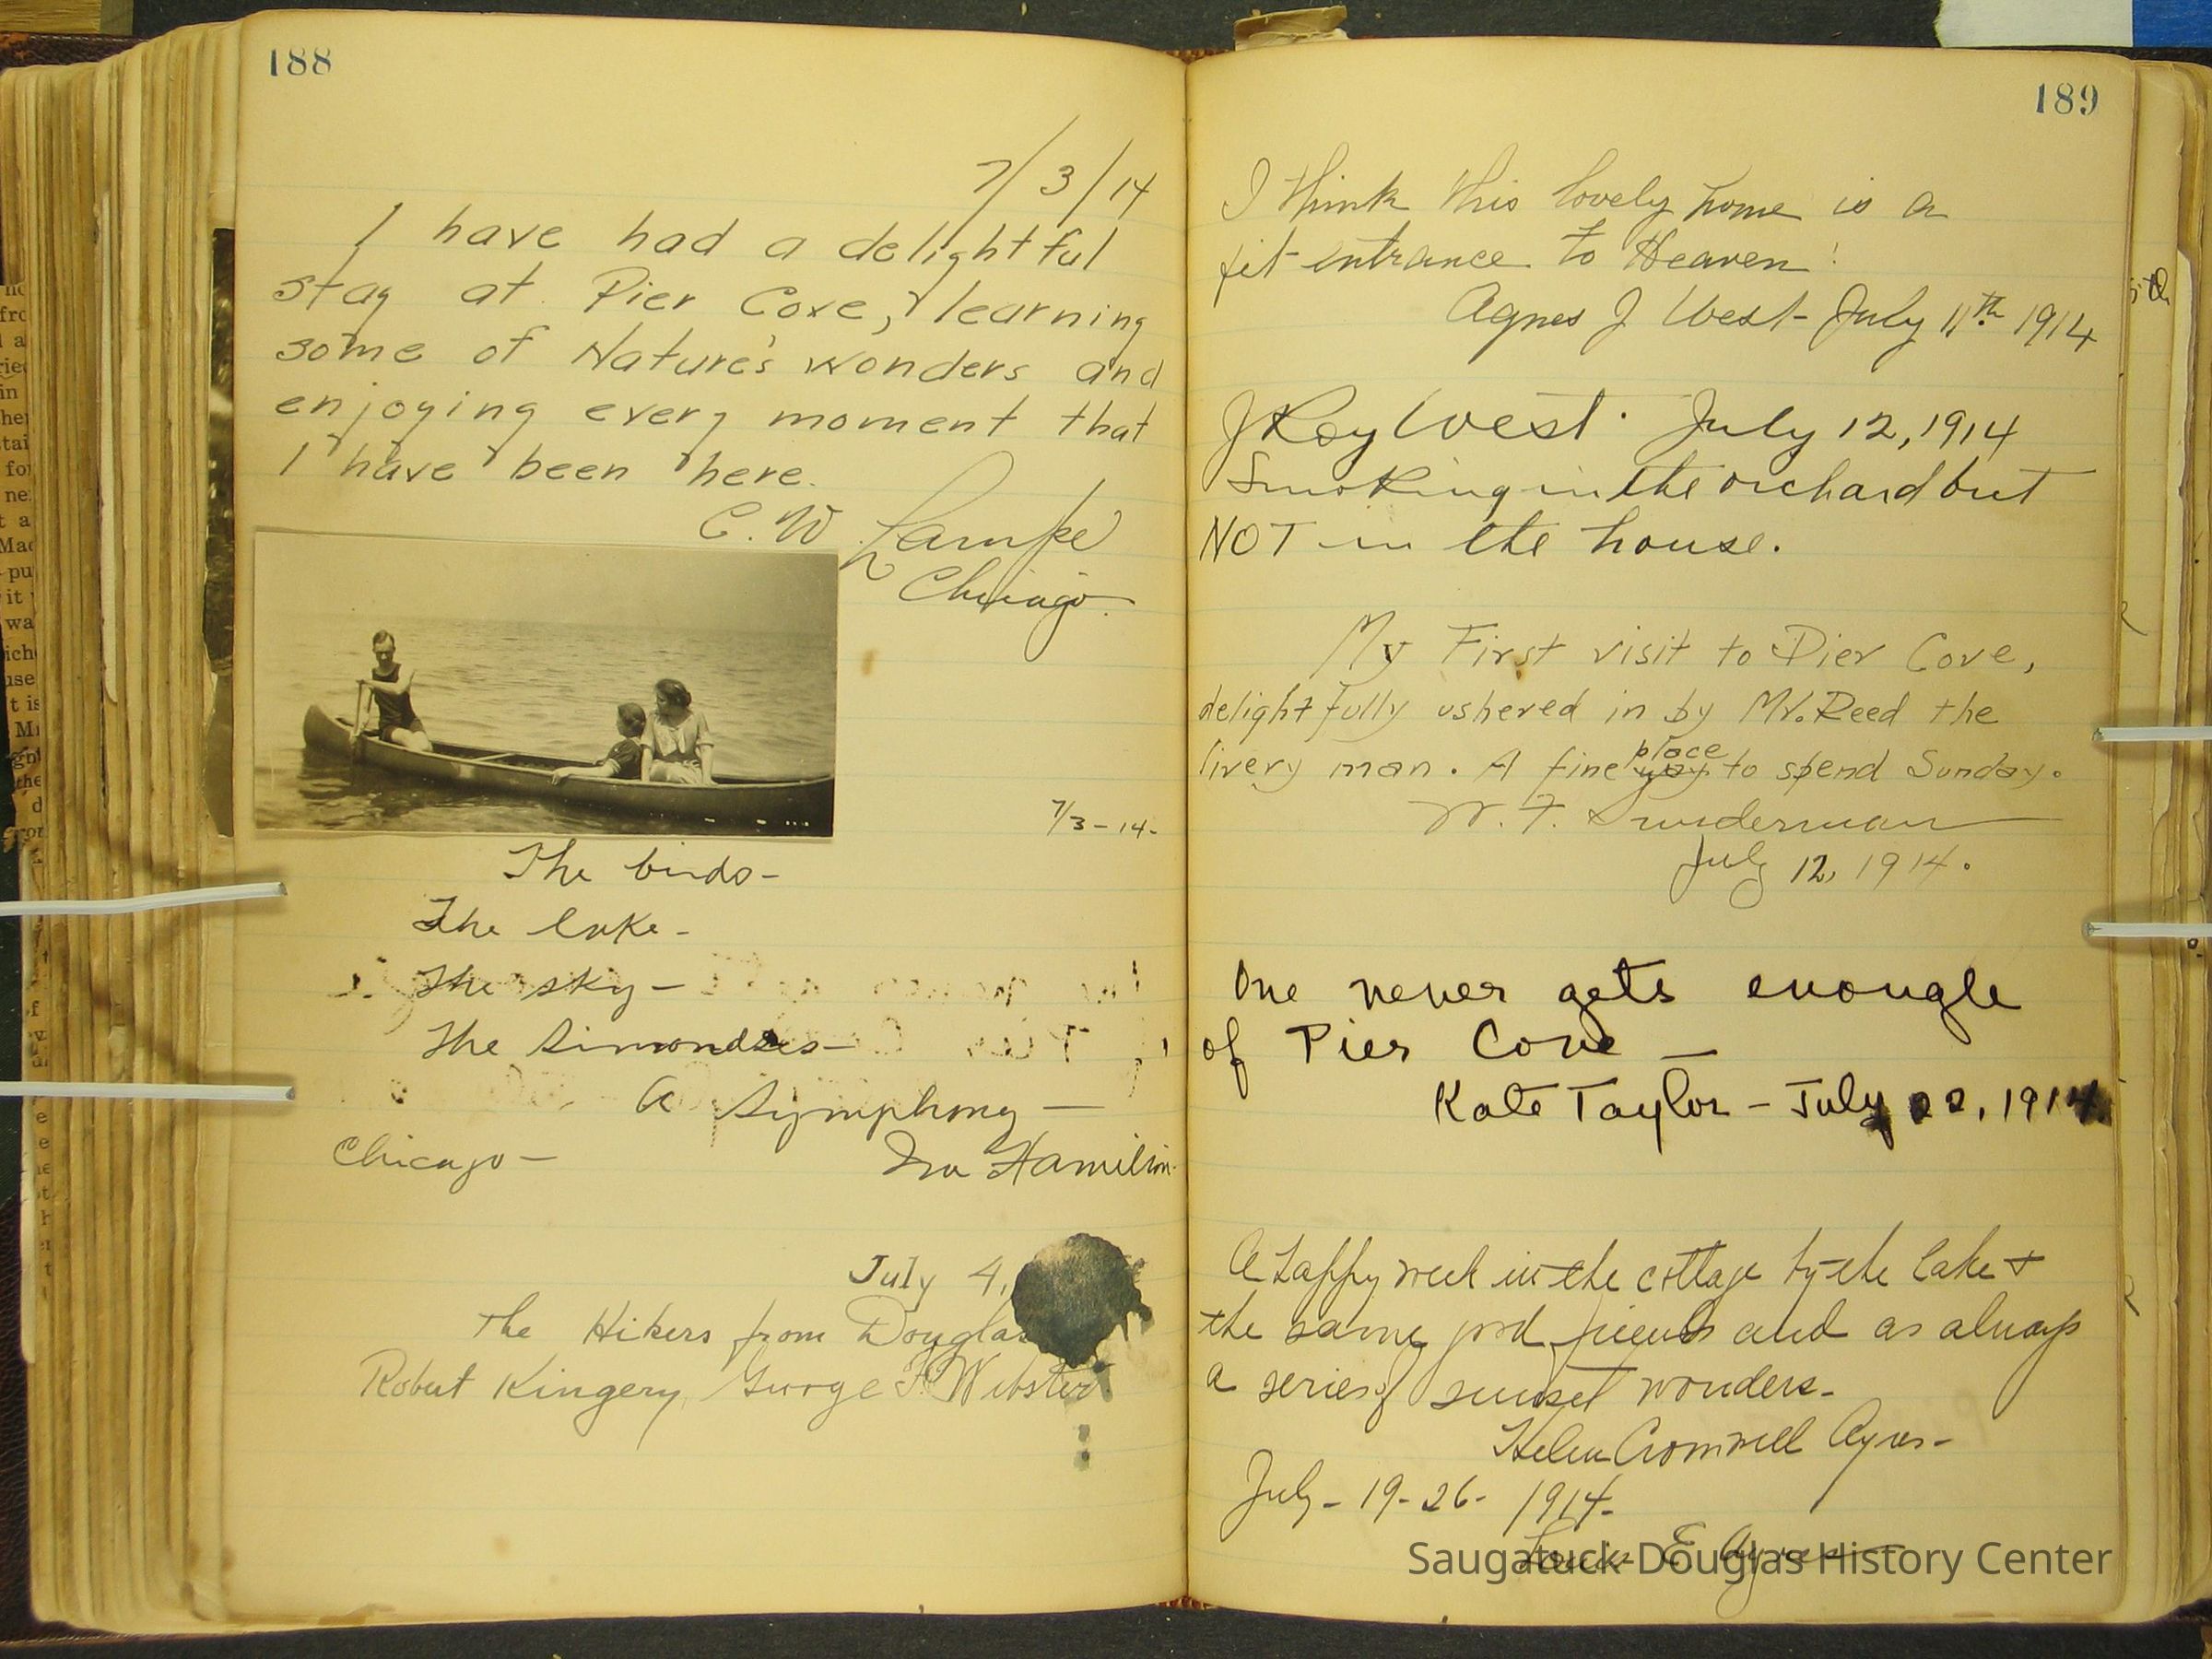 188
7/3/14
I have had a delightful
stay at Pier Cove, learning
some of Nature's wonders and
enjoying every moment that
I have been here.
C. W. Lampe
Chicago.
7/3-14-
The birds-
The lake-
The sky-
The Simondses-
A Symphony-
Chicago- Hamilton
July 4,
The Hikers from Douglas
Robert Kingery, George F. Webster
189
I think this lovely home is a
fit entrance to Heaven!
Agnes J West- July 11th 1914
J Roy West. July 12, 1914
Smoking in the orchard but
NOT in the house.
My First visit to Pier Cove,
delightfully ushered in by Mr. Reed the
livery man. A fine place to spend Sunday.
W. F.
July 12, 1914.
One never gets enough
of Pier Cove -
Kate Taylor - July 22, 1914.
A happy week in the cottage by the lake +
the same good friends and as always
a series of sunset wonders-
Helen Cromwell Ayres-
July- 19-26- 1914-
Louis E Ayres
Saugatuck-Douglas History Center